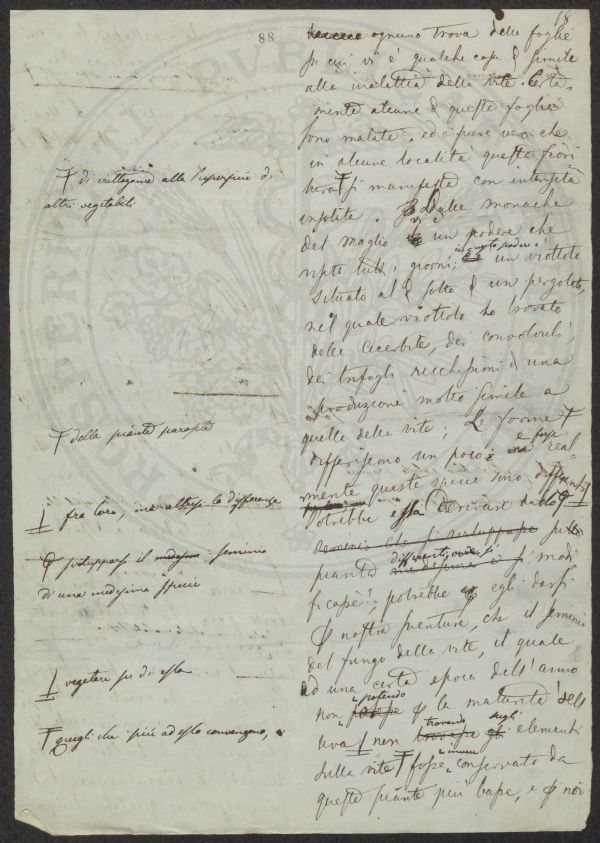 88
18
ognuno trova delle foglie
su cui vi è qualche cosa di simile
alla malattia della vite. Certa-
mente alcune di queste foglie
sono malate, ed è pure vero che
in alcune località questa fiori
tura si manifesta con intensità
insolita. Dalle monache
del Maglio vi è un podere che
visito tutti i giorni; in questo podere è un viottolo
situato al di sotto di un pergolato,
nel quale viottolo ho trovato
delle cicerbite, dei convolvuli,
dei trifogli ricchissimi di una
produzione molto simile a
quella della vite; Le forme
differiscono un poco: e forse real-
mente queste specie sono differenti
potrebbe essa derivare dallo
seminio che si sviluppasse su
pianta differente, ove si modi
ficasse?; potrebbe egli darsi
nostra sventura, che il seminio
del fungo della vite, il quale
ad una certa epoca dell'anno
non potendo la maturità dell'
uva non trovando negli elementi
sulla vite fosse conservato da
queste piante più basse, e noi
di crittogame alla superficie di
altri vegetabili
della pianta parassita
fra loro, ma altresì la differenza
svilupparsi il medesimo seminio
di una medesima specie
vegetare su di essa
quegli che più ad esso convengono, e